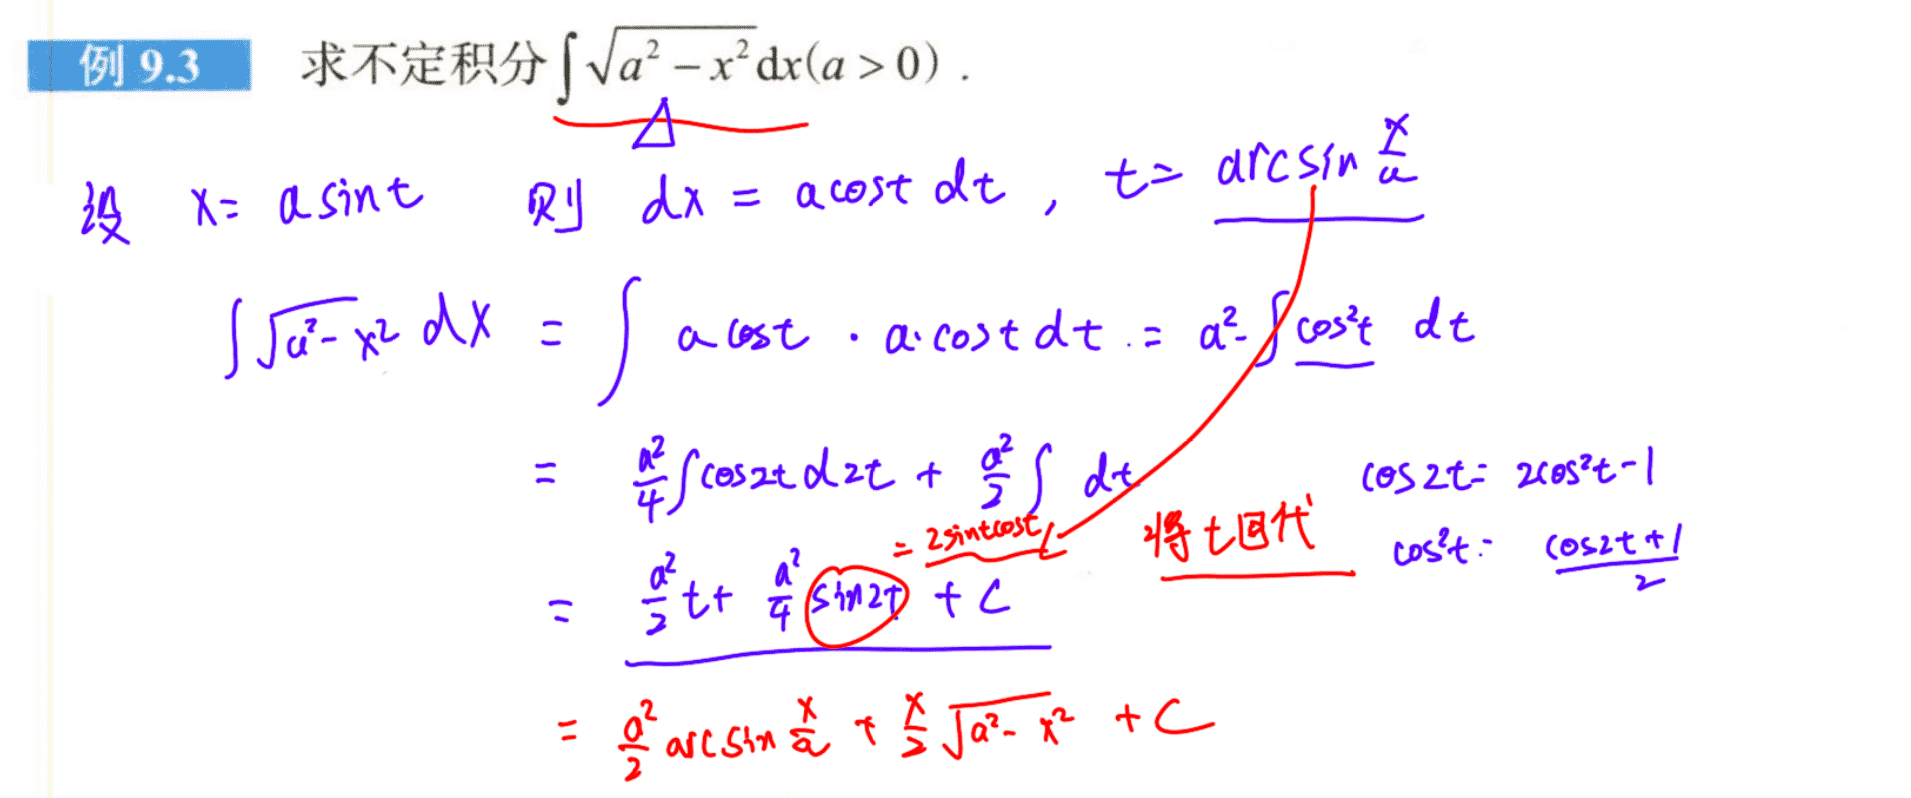 例 9.3 求不定积分∫√(a² − x²)dx(a > 0) .
设 x = a sin t 则 dx = a cos t dt , t = arcsin x/a
∫√(a² - x²) dx = ∫ a cos t · a · cos t dt = a² · ∫ cos²t dt
= a²/4 ∫ cos2t d2t + a²/2 ∫ dt
cos2t = 2cos²t - 1
= 2sintcost 将 t 回代
cos²t = (cos2t + 1)/2
= a²/2 t + a²/4 sin2t + C
= a²/2 arcsin x/a + x/2 √(a² - x²) + C